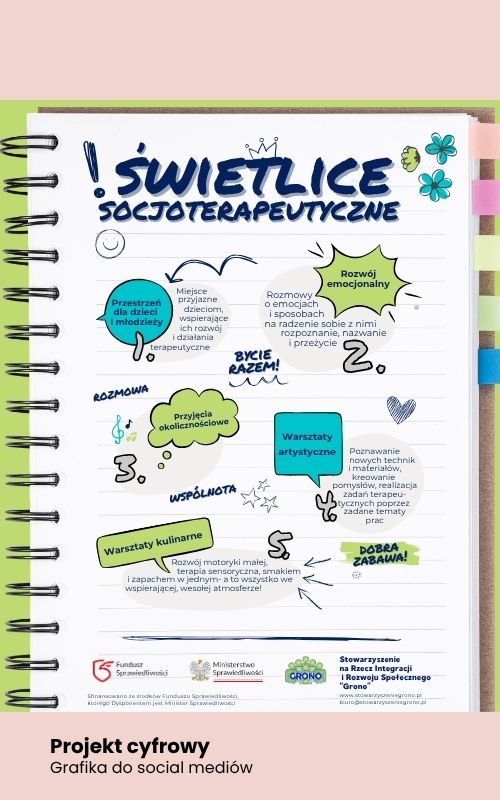 ! ŚWIETLICE
SOCJOTERAPEUTYCZNE
Przestrzeń
dla dzieci
i młodzieży
1.
Miejsce
przyjazne
dzieciom,
wspierające
ich rozwój
i działania
terapeutyczne
Rozwój
emocjonalny
Rozmowy
o emocjach
i sposobach
na radzenie sobie z nimi
rozpoznanie, nazwanie
i przeżycie
2.
BYCIE
RAZEM!
ROZMOWA
Przyjęcia
okolicznościowe
3.
Warsztaty
artystyczne
Poznawanie
nowych technik
i materiałów,
kreowanie
pomysłów, realizacja
zadań terapeu-
tycznych poprzez
zadane tematy
prac
4.
WSPÓLNOTA
5.
Warsztaty kulinarne
Rozwój motoryki małej,
terapia sensoryczna, smakiem
i zapachem w jednym- a to wszystko we
wspierającej, wesołej atmosferze!
DOBRA
ZABAWA!
Fundusz
Sprawiedliwości
Ministerstwo
Sprawiedliwości
GRONO
Stowarzyszenie
na Rzecz Integracji
i Rozwoju Społecznego
"Grono"
www.stowarzyszeniegrono.pl
biuro@stowarzyszeniegrono.pl
Sfinansowano ze środków Funduszu Sprawiedliwości,
którego Dysponentem jest Minister Sprawiedliwości
Projekt cyfrowy
Grafika do social mediów